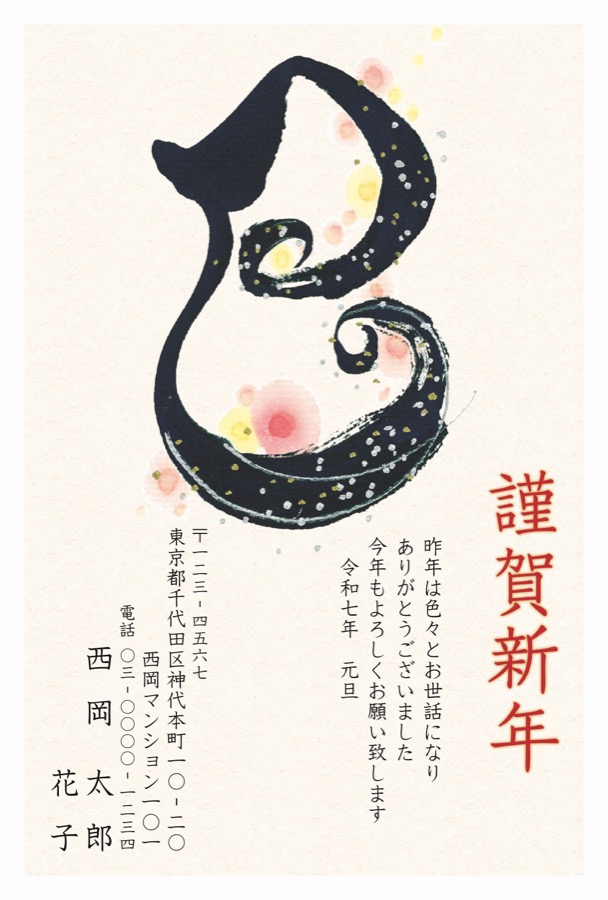 巳
謹賀新年
昨年は色々とお世話になり
ありがとうございました
今年もよろしくお願い致します
令和七年　元旦
〒一二三-四五六七
東京都千代田区神代本町一〇-二〇
西岡マンション一〇一
電話　〇三-〇〇〇〇-一二三四
西岡　太郎
花子